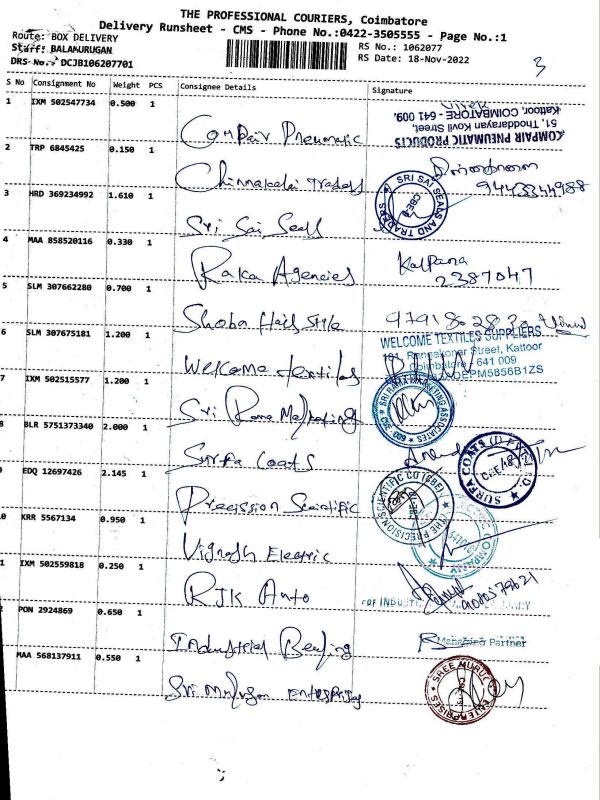 THE PROFESSIONAL COURIERS, Coimbatore
Delivery Runsheet - CMS - Phone No.:0422-3505555 - Page No.:1
Route: BOX DELIVERY
RS No.: 1062077
Staff: BALAMURUGAN
RS Date: 18-Nov-2022
DRS No.: DCJB106207701
3
S No Consignment No Weight PCS Consignee Details Signature
1 IXM 502547734 0.500 1
Compair Pneumatic
COMPAIR PNEUMATIC PRODUCTS
51, Thoddarayan Kovil Street,
Kattoor, COIMBATORE - 641 009.
2 TRP 6845425 0.150 1
Chinnakadai Traders
9443344988
3 HRD 369234992 1.610 1
Sri Sai Seals
SRI SAI SEALS AND TRADERS
CBE-9
4 MAA 858520116 0.330 1
Raka Agencies
Kalpana
2387047
5 SLM 307662280 0.700 1
Shoba Hair Style
6 SLM 307675181 1.200 1
Welcome textiles
WELCOME TEXTILES SUPPLIERS
Street, Kattoor
Coimbatore - 641 009
7 IXM 502515577 1.200 1
Sri Rama Marketing
SRI RAMA MARKETING ASSOCIATES
8 BLR 5751373340 2.000 1
Surfa Coats
SURFA COATS (I) PVT. LTD.
9 EDQ 12697426 2.145 1
Precission Scientific
THE PRECISION SCIENTIFIC CO (CBE)
0 KRR 5567134 0.950 1
Vignesh Electric
ELECTRIC COMPANY
1 IXM 502559818 0.250 1
RJK Auto
2 PON 2924869 0.650 1
Industrial Bearing
Managing Partner
MAA 568137911 0.550 1
Sri Murugan Enterprises
SREE MURUGAN ENTERPRISES